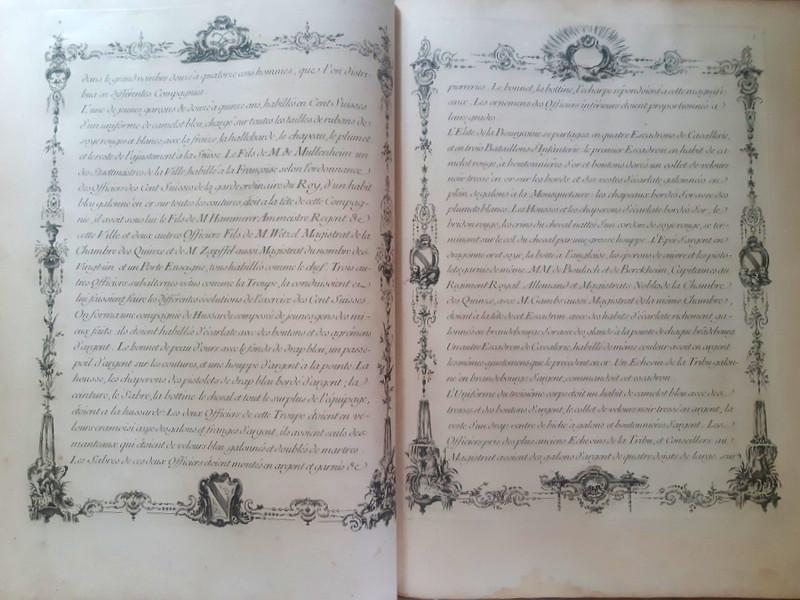 dans le grand nombre douze à quatorze cens hommes, que l'on distri-
bua en differentes Compagnies
L'une de jeunes garçons de douze à quinze ans, habillés en Cent Suisses
d'un uniforme de camelot bleu, chargé sur toutes les tailles de rubans de
soye rouges et blancs, avec la fraise, la hallebarde, le chapeau, le plumet
et le reste de l'ajustement à la Suisse. Le Fils de M. de Mullenheim un
des Stadtmeistres de la Ville, habillé à la Françoise selon l'ordonnance
des Officiers des Cent Suisses de la garde ordinaire du Roy, d'un habit
bleu galonné en or sur toutes les coutures, etoit à la tête de cette Compag-
nie, il avoit sous lui le Fils de M. Hammerer Ammeistre Regent de
cette Ville et deux autres Officiers Fils de M. Wetzel Magistrat de la
Chambre des Quinze et de M. Zæpffel aussi Magistrat du nombre des
Vingt-un et un Porte Enseigne, tous habillés comme le chef. Trois au-
tres Officiers subalternes vêtus comme la Troupe, la conduisoient en
lui faisant faire les differentes évolutions de l'exercice des Cent Suisses.
On forma une compagnie de Hussards composée de jeunes gens des mi-
eux faits, ils étoient habillés d'écarlate avec des boutons et des agrémens
d'argent. Le bonnet de peau d'ours avec le fonds de drap bleu, un passe-
poil d'argent sur les coutures, et une houppe d'argent à la pointe. La
housse, les chaperons des pistolets de drap bleu bordé d'argent; la
ceinture, le Sabre, la bottine, le cheval et tout le surplus de l'équipage,
étoient à la hussarde. Les deux Officiers de cette Troupe etoient en ve-
lours cramoisi avec des galons et franges d'argent, ils avoient seuls des
manteaux qui étoient de velours bleu, galonnés et doublés de martres.
Les Sabres de ces deux Officiers etoient montés en argent et garnis de
pierreries. Le bonnet, la bottine, l'echarpe répondoient à cette magnifi-
cence. Les ornemens des Officiers inférieurs étoient proportionnés à
leurs grades
L'Elite de la Bourgeoisie se partagea en quatre Escadrons de Cavallerie,
et en trois Bataillons d'Infanterie. le premier Escadron en habit de ca-
melot rouge, à boutonnieres d'or et boutons dorés un collet de velours
noir tressé en or sur les bords et des vestes d'écarlate galonnées en
plein de galons à la Mousquetaire: les chapeaux bordés d'or avec des
plumets blancs. Les Housses et les chaperons d'écarlate bordés d'or, le
bridon rouge, les crins du cheval nattés d'un cordon de soye rouge, se ter-
minant sur le col du cheval par une grosse houppe. L'Epée d'argent en
dragonne or et soye, la botte à l'Angloise, les éperons de cuivre et les pisto-
lets garnis de même. MM. de Boulach et de Berckheim, Capitaines au
Regiment Royal Allemand et Magistrats Nobles de la Chambre
des Quinze, avec M. Gambs aussi Magistrat de la même Chambre,
étoient à la tête de cet Escadron avec des habits d'écarlate richement, ga-
lonnés en brandebourgs d'or avec des glands à la pointe de chaque brandebourg.
Un autre Escadron de Cavalerie, habillé de même couleur avoit en argent
les mêmes ajustemens que le précedent en or. Un Echevin de la Tribu galon-
né en brandebourgs d'argent, commandoit cet escadron.
L'Uniforme du troisième corps étoit un habit de camelot bleu avec des
tresses et des boutons d'argent, le collet de velours noir tressé en argent, la
veste d'un drap ventre de biche à galons et boutonnieres d'argent. Les
Officiers pris des plus anciens Echevins de la Tribu, et Conseillers au
Magistrat avoient des galons d'argent de quatre doigts de large, sur